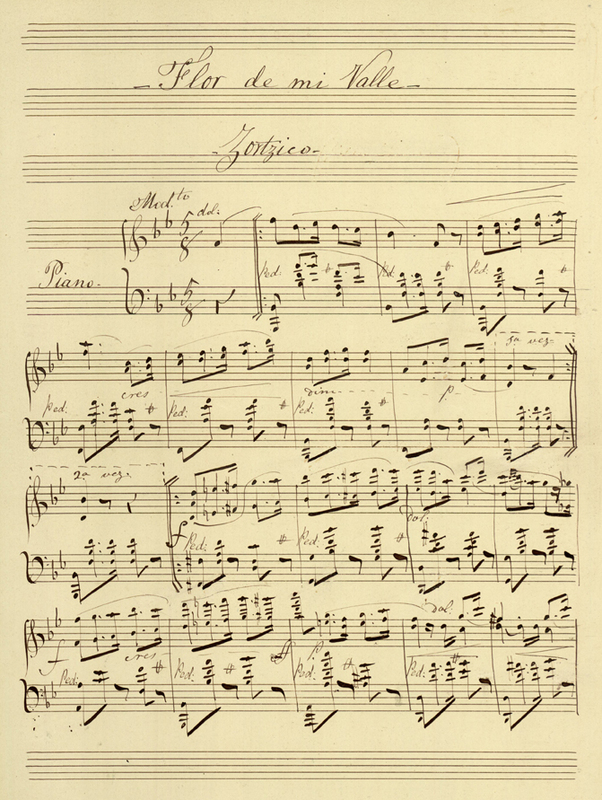 - Flor de mi Valle -
- Zortzico -
Mod.to dol:
5
8
Piano. 5
8
Ped: Ped: Ped:
1a vez
cres dim p
Ped: Ped: Ped:
2a vez.
f dol:
Ped: Ped:
dol.
f cres ff p
Ped: Ped: Ped: Ped: